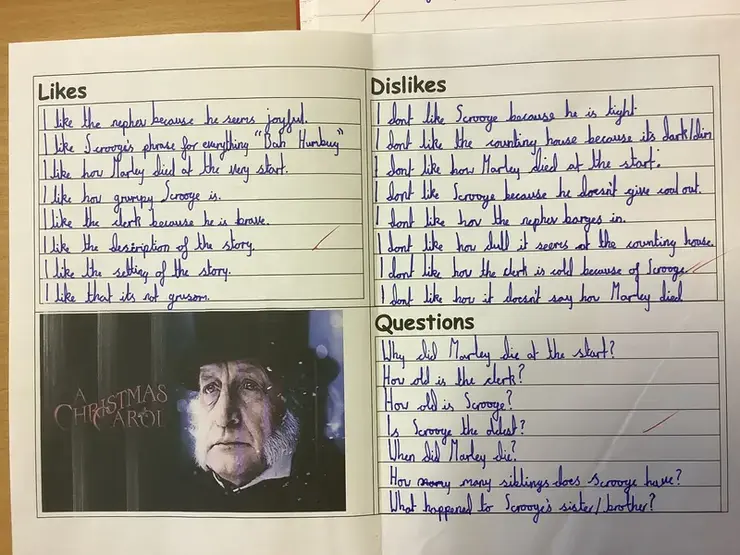 Likes
I like the nepher because he seems joyful.
I like Scrooge's phrase for everything "Bah Humbug"
I like how Marley died at the very start.
I like how grumpy Scrooge is.
I like the clerk because he is brave.
I like the description of the story.
I like the setting of the story.
I like that its not grusom.
A CHRISTMAS CAROL
Dislikes
I dont like Scrooge because he is tight
I dont like the counting house because its dark/dim
I dont like how Marley died at the start.
I dont like Scrooge because he doesn't give coal out.
I dont like how the nepher barges in.
I dont like how dull it seems at the counting house.
I dont like how the clerk is cold because of Scrooge
I dont like how it doesn't say how Marley died
Questions
Why did Marley die at the start?
How old is the clerk?
How old is Scrooge?
Is Scrooge the oldest?
When did Marley die?
How many siblings does Scrooge have?
What happened to Scrooge's sister/brother?